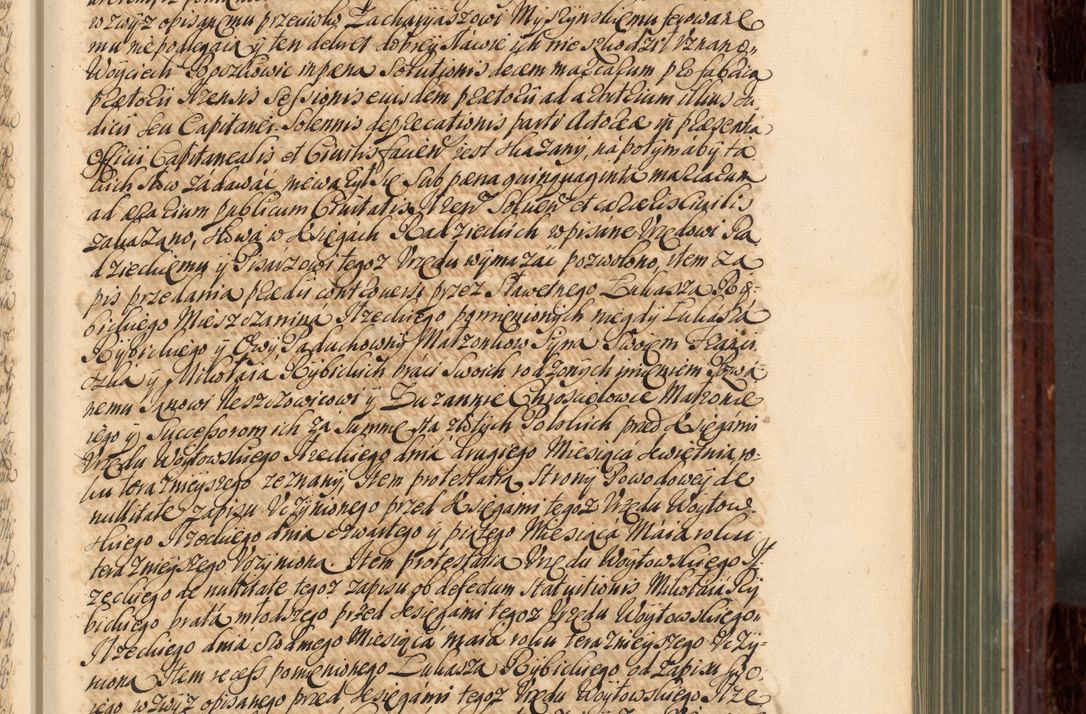 wzwyż opisanemu przeciwko Zacharyaszowi Myszynskiemu ferowane
mu niepodlegaią y ten dekret dobrey sławie ich nie szkodzi. Uznano,
Woyciech Roszkowic in pæna solutionis decem marcarum pro fabrica
prætorii Srzensis sessionis eiusdem prætorii ad arbitrium illius Iu
dicii seu Capitanei. Solennis deprecationis parti Actoreæ in præsentia
Officii Capitanealis et Civilis faciend. iest skazany, na potym aby ta
kich słow zadawać nie ważył się sub pæna quinquaginta marcarum
ad ærarium publicum Civitatis Srzen. solven. et carceris civilis
zakazano, słowa w Księgach Radzieckich wpisane Urzędowi Ra
dzieckiemu y Pisarzowi tegoż Urzędu wymazać pozwolono, Item za
pis przedania prædii controversi przez Sławetnego Łukasza Ry-
bickiego Mieszczanina Srzeckiego pomienionych niegdy Łukasza
Rybickiego y Ewy Paduchowny Małżonkow Syna Swoiem
y Mikołaia Rybickich braci Swoich rodzonych imieniem
nemu Janowi Neszczowicowi y Zuzannie Małżonce
iego y Successorom ich za Summę Sta złotych Polskich przed Księgami
Urzędu Woytowskiego Srzeckiego dnia drugiego Miesiąca Kwietnia ro-
ku teraznieyszego zeznany, Item protestatia Strony Powodowey de
nullitate zapisu uczynionego przed Księgami tegoż Urzędu Woytow-
skiego Srzeckiego dnia czwartego y piątego Miesiąca Maia roku
teraznieyszego Uczyniona Item protestatia Urzędu Woytowskiego S
rzeckiego de nullitate tegoż zapisu ob defectum statuitionis Mikołaia Ry
bickiego brata młodszego przed Księgami tegoż Urzędu Woytowskiego
Srzeckiego dnia Siodmego Miesiąca Maia roku teraznieyszego Uczy-
niona Item recess pomienionego Łukasza Rybickiego, od zapisu
iego wzwyż opisanego przed Księgami tegoż Urzędu Woytowskiego Srze